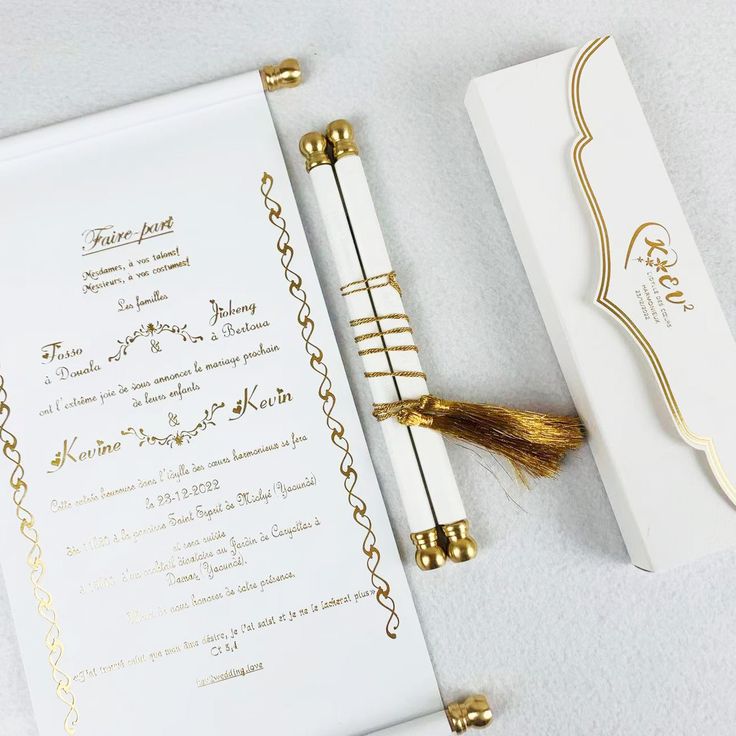 Faire-part
Mesdames, à vos talons!
Messieurs, à vos costumes!
Les familles
Tosso
à Douala
&
Jiokeng
à Bertoua
ont l'extrême joie de vous annoncer le mariage prochain
de leurs enfants
Kevine
&
Kevin
Cette entrée heureuse dans l'idylle des cœurs harmonieux se fera
le 23-12-2022
à la paroisse Saint Esprit de (Yaoundé)
et sera suivie
d'un cocktail dînatoire au Jardin de à
Damas (Yaoundé).
nous honorer de votre présence.
trouvé celui que mon âme désire, je l'ai saisi et je ne le lâcherai plus»
Ct 3,4
wedding.love
K & V²
L'IDYLLE DES CŒURS
HARMONIEUX
23/12/2022